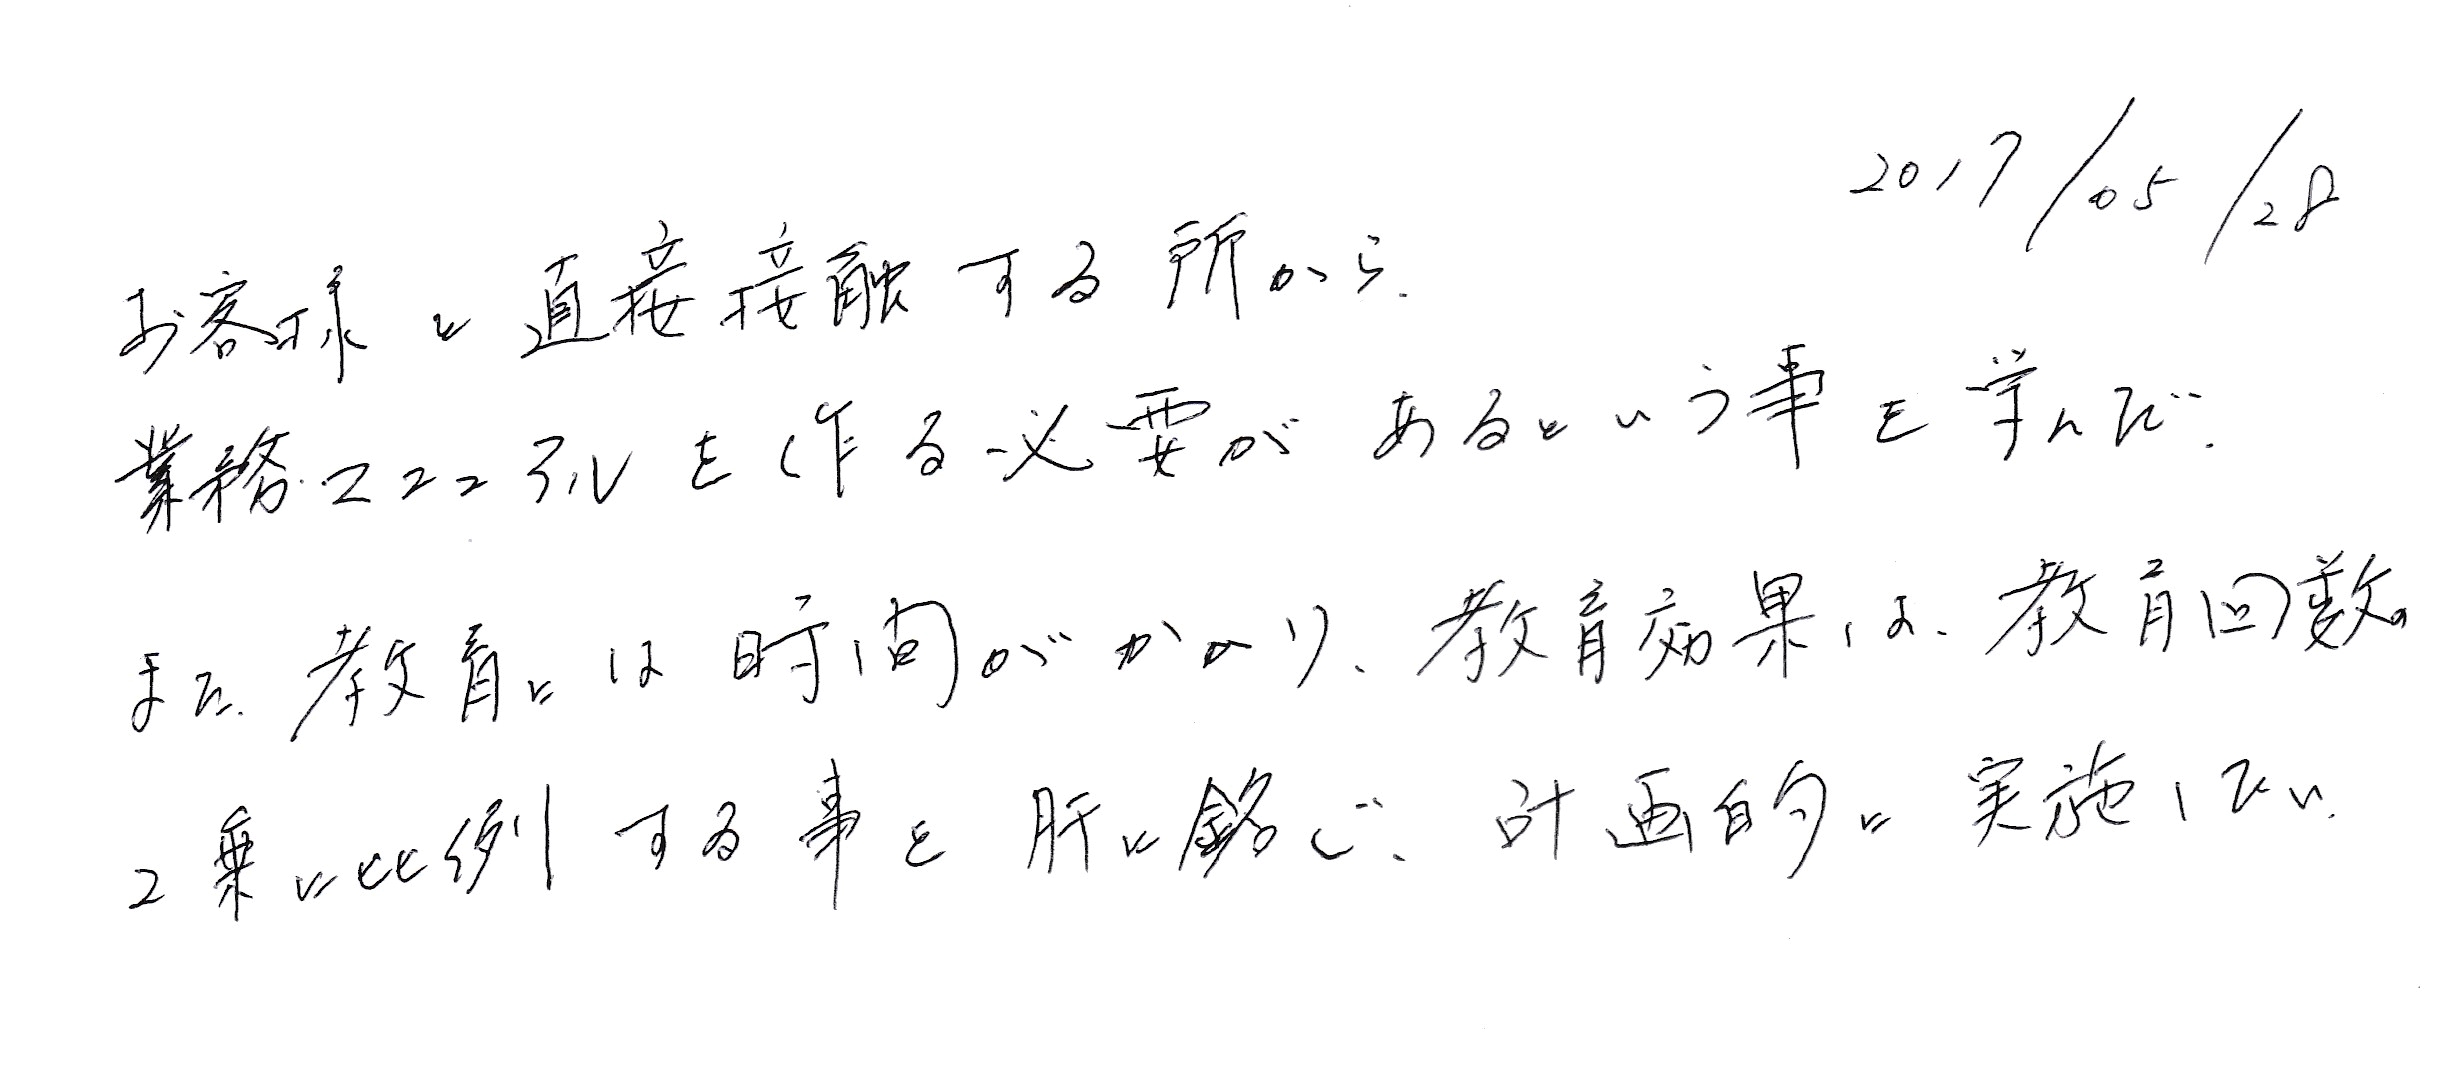 2017/05/28
お客様と直接接触する所から、
業務マニュアルを作る必要があるという事を学んだ。
また、教育には時間がかかり、教育効果は、教育回数の
2乗に比例する事を肝に銘じ、計画的に実施したい。